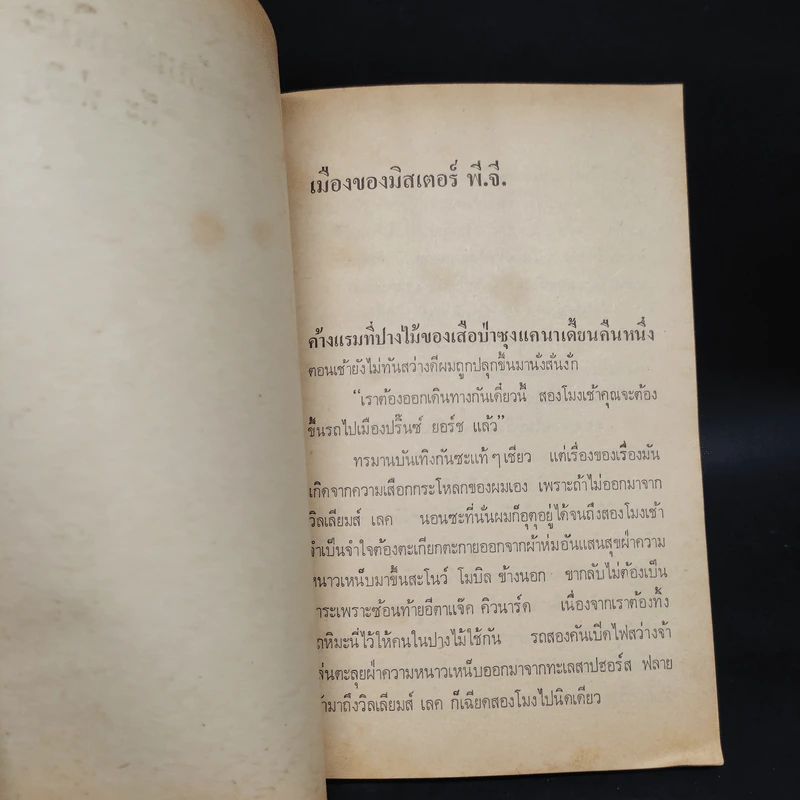 เมืองของมิสเตอร์ พี.จี.
ค้างแรมที่ปางไม้ของเสือป่าซุงแคนาเดี้ยนคืนหนึ่ง
ตอนเช้ายังไม่ทันสว่างดีผมถูกปลุกขึ้นมานั่งสั่นงั่ก
“เราต้องออกเดินทางกันเดี๋ยวนี้ สองโมงเช้าคุณจะต้อง
ขึ้นรถไปเมืองปริ๊นซ์ ยอร์ช แล้ว”
ทรมานบันเทิงกันซะแท้ ๆ เชียว แต่เรื่องของเรื่องมัน
เกิดจากความเสือกกระโหลกของผมเอง เพราะถ้าไม่ออกมาจาก
วิลเลียมส์ เลค นอนซะที่นั่นผมก็อุตุอยู่ได้จนถึงสองโมงเช้า
จำเป็นจำใจต้องตะเกียกตะกายออกจากผ้าห่มอันแสนสุขฝ่าความ
หนาวเหน็บมาขึ้นสะโนว์ โมบิล ข้างนอก ขากลับไม่ต้องเป็น
ระเพราะซ้อนท้ายอีตาแจ๊ค คิวนาร์ด เนื่องจากเราต้องทิ้ง
ถหิมะนี่ไว้ให้คนในปางไม้ใช้กัน รถสองคันเปิดไฟสว่างจ้า
ล่นตะลุยฝ่าความหนาวเหน็บออกมาจากทะเลสาปฮอร์ส ฟลาย
มาถึงวิลเลียมส์ เลค ก็เฉียดสองโมงไปนิดเดียว